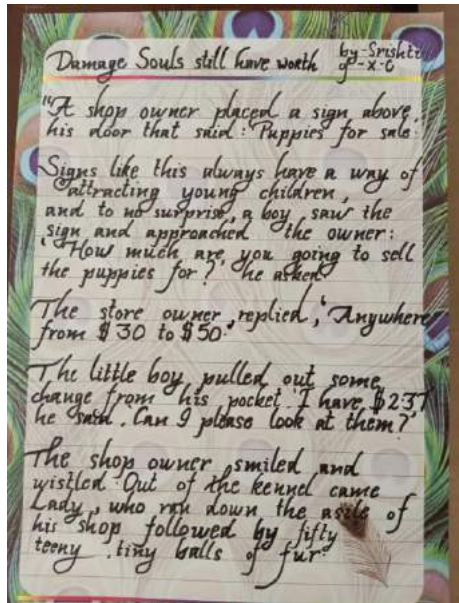 Damage Souls still have worth by-Srishti
of-X-C
"A shop owner placed a sign above
his door that said: Puppies for sale.
Signs like this always have a way of
attracting young children,
and to no surprise, a boy saw the
sign and approached the owner:
'How much are you going to sell
the puppies for?' he asked
The store owner replied, 'Anywhere
from $30 to $50.'
The little boy pulled out some
change from his pocket 'I have $2.37
he said. Can I please look at them?'
The shop owner smiled and
wistled. Out of the kennel came
Lady, who ran down the asile of
his shop followed by fifty
teeny, tiny balls of fur.